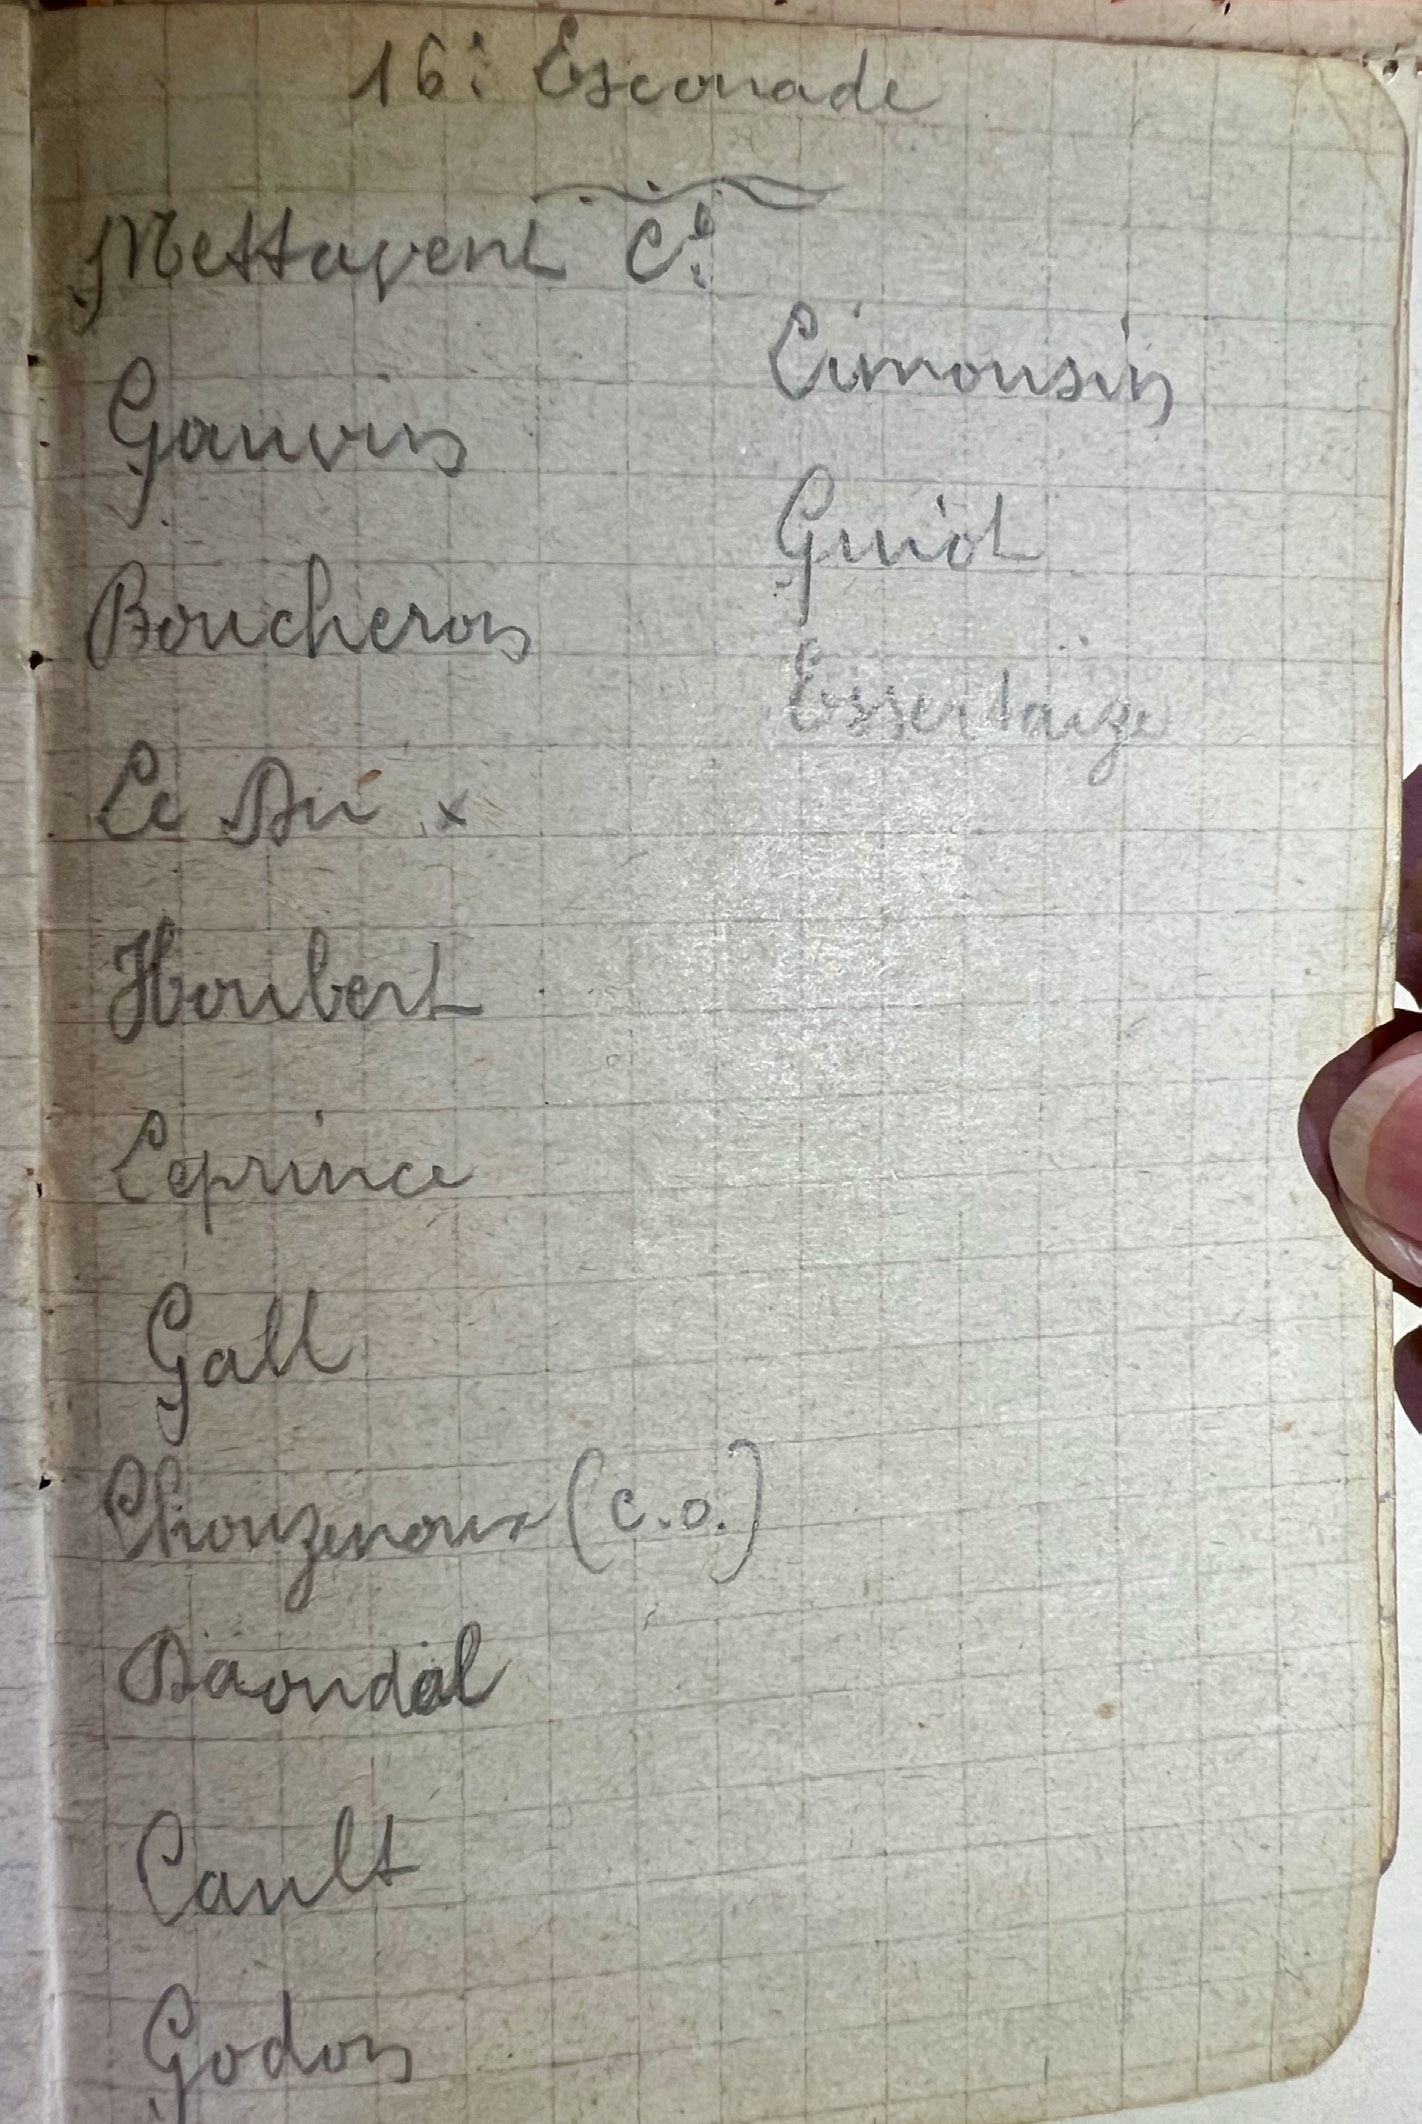 16e Escouade
Mettayent Ct
Gauvin
Boucheron
Le Dû x
Houbert
Leprince
Gall
Chouzenoux (C.O.)
Daoudal
Cault
Godon
Limousin
Guiot
Essertaize